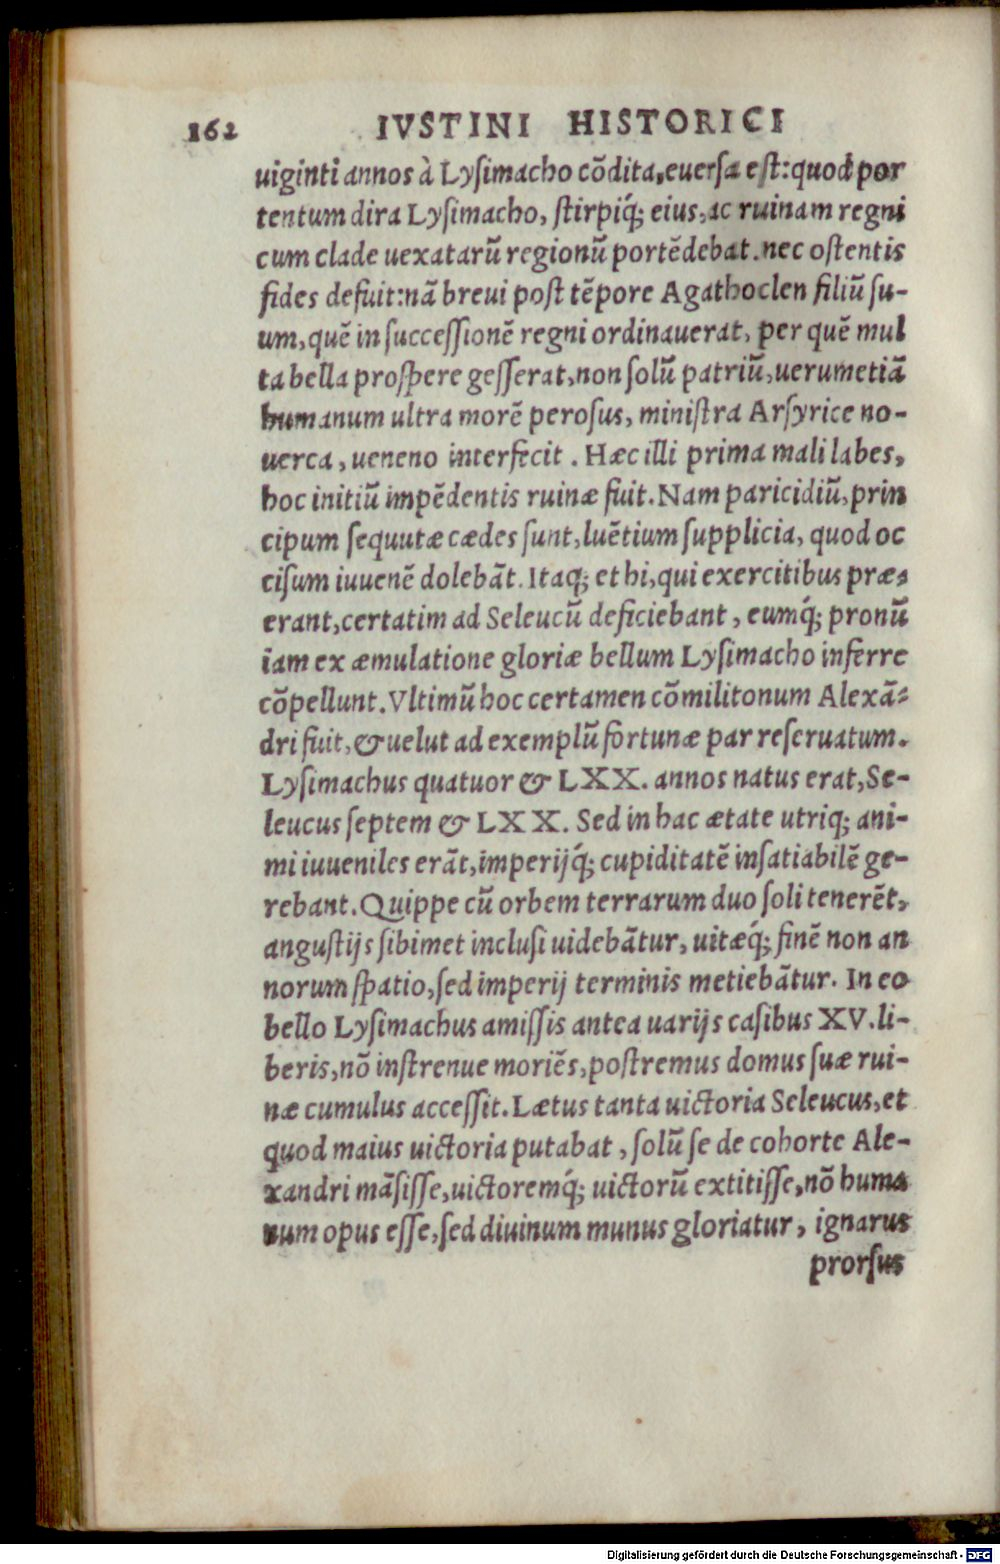 162 IVSTINI HISTORICI
uiginti annos à Lyſimacho cõdita, euerſa eſt: quod por
tentum dira Lyſimacho, ſtirpiq́; eius, ac ruinam regni
cum clade uexatarũ regionũ portẽdebat. nec oſtentis
fides defuit: nã breui poſt tẽpore Agathoclen filiũ ſu-
um, quẽ in ſucceſſionẽ regni ordinauerat, per quẽ mul
ta bella proſpere geſſerat, non ſolũ patriũ, uerumetiã
humanum ultra morẽ peroſus, miniſtra Arſyrice no-
uerca, ueneno interfecit. Hæc illi prima mali labes,
hoc initiũ impẽdentis ruinæ fuit. Nam paricidiũ, prin
cipum ſequutæ cædes ſunt, luẽtium ſupplicia, quod oc
ciſum iuuenẽ dolebãt. Itaq; et hi, qui exercitibus præ-
erant, certatim ad Seleucũ deficiebant, eumq́; pronũ
iam ex æmulatione gloriæ bellum Lyſimacho inferre
cõpellunt. Vltimũ hoc certamen cõmilitonum Alexã-
dri fuit, & uelut ad exemplũ fortunæ par reſeruatum.
Lyſimachus quatuor & LXX. annos natus erat, Se-
leucus ſeptem & LXX. Sed in hac ætate utriq; ani-
mi iuueniles erãt, imperijq́; cupiditatẽ inſatiabilẽ ge-
rebant. Quippe cũ orbem terrarum duo ſoli tenerẽt,
anguſtijs ſibimet incluſi uidebãtur, uitæq́; finẽ non an
norum ſpatio, ſed imperij terminis metiebãtur. In eo
bello Lyſimachus amiſſis antea uarijs caſibus XV. li-
beris, nõ inſtrenue moriẽs, poſtremus domus ſuæ rui-
næ cumulus acceſſit. Lætus tanta uictoria Seleucus, et
quod maius uictoria putabat, ſolũ ſe de cohorte Ale-
xandri mãſiſſe, uictoremq́; uictorũ extitiſſe, nõ huma
num opus eſſe, ſed diuinum munus gloriatur, ignarus
prorſus
Digitalisierung gefördert durch die Deutsche Forschungsgemeinschaft - DFG